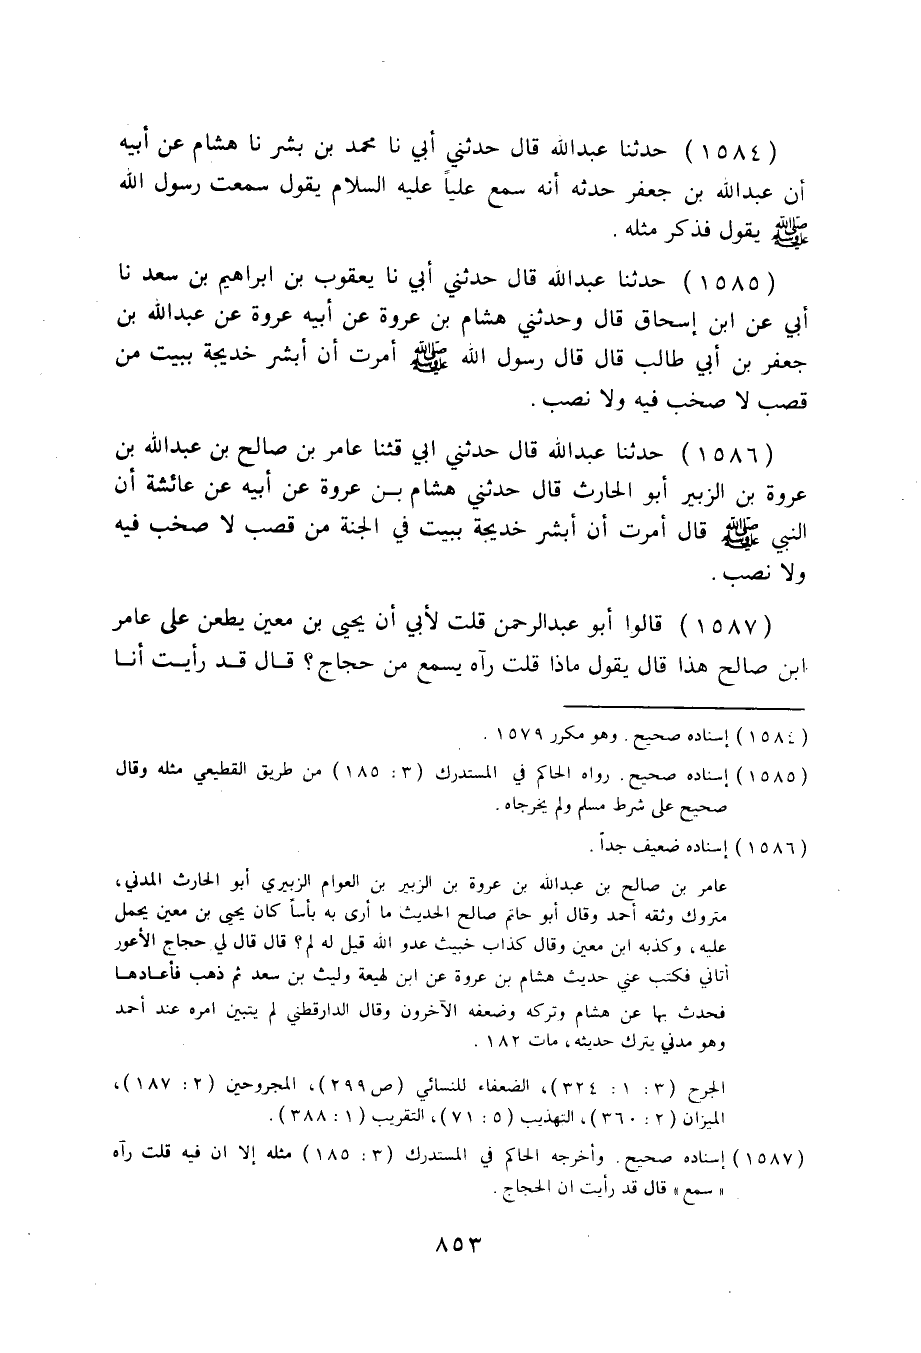 (١٥٨٤) حدثنا عبدالله قال حدثني أبي نا محمد بن بشر نا هشام عن أبيه
أن عبدالله بن جعفر حدثه أنه سمع علياً عليه السلام يقول سمعت رسول الله
ﷺ يقول فذكر مثله .
(١٥٨٥) حدثنا عبدالله قال حدثني أبي نا يعقوب بن ابراهيم بن سعد نا
أبي عن ابن إسحاق قال وحدثني هشام بن عروة عن أبيه عروة عن عبدالله بن
جعفر بن أبي طالب قال قال رسول الله ﷺ أمرت أن أبشر خديجة ببيت من
قصب لا صخب فيه ولا نصب .
(١٥٨٦) حدثنا عبدالله قال حدثني ابي قثنا عامر بن صالح بن عبدالله بن
عروة بن الزبير أبو الحارث قال حدثني هشام بـن عروة عن أبيه عن عائشة أن
النبي ﷺ قال أمرت أن أبشر خديجة ببيت في الجنة من قصب لا صخب فيه
ولا نصب .
(١٥٨٧) قالوا أبو عبدالرحمن قلت لأبي أن يحيى بن معين يطعن على عامر
ابن صالح هذا قال يقول ماذا قلت رآه يسمع من حجاج؟ قـال قـد رأيـت أنـا
(١٥٨٤) إسناده صحيح . وهو مكرر ١٥٧٩ .
(١٥٨٥) إسناده صحيح . رواه الحاكم في المستدرك (٣: ١٨٥) من طريق القطيعي مثله وقال
صحيح على شرط مسلم ولم يخرجاه .
(١٥٨٦) إسناده ضعيف جداً .
عامر بن صالح بن عبدالله بن عروة بن الزبير بن العوام الزبيري أبو الحارث المدني،
متروك وثقه أحمد وقال أبو حاتم صالح الحديث ما أرى به بأساً كان يحيى بن معين يحمل
عليه، وكذبه ابن معين وقال كذاب خبيث عدو الله قيل له لم؟ قال قال لي حجاج الأعور
أتاني فكتب عني حديث هشام بن عروة عن ابن لهيعة وليث بن سعد ثم ذهب فأعـادهـا
فحدث بها عن هشام وتركه وضعفه الآخرون وقال الدارقطني لم يتبين امره عند أحمد
وهو مدني يترك حديثه، مات ١٨٢ .
الجرح (٣: ١: ٣٢٤)، الضعفاء للنسائي (ص٢٩٩)، المجروحين (٢: ١٨٧)،
الميزان (٢: ٣٦٠)، التهذيب (٥: ٧١)، التقريب (١: ٣٨٨).
(١٥٨٧) إسناده صحيح . وأخرجه الحاكم في المستدرك (٣: ١٨٥) مثله إلا ان فيه قلت رآه
«سمع» قال قد رأيت ان الحجاج .
٨٥٣